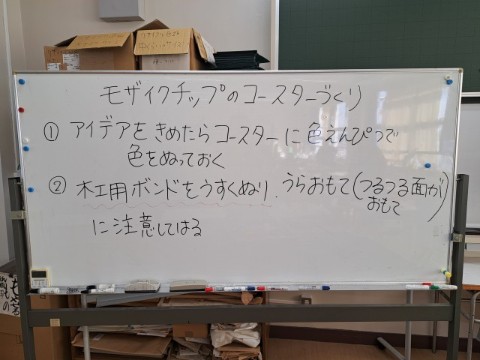 モザイクチップのコースターづくり
① アイデアをきめたらコースターに色えんぴつで
色をぬっておく
② 木工用ボンドをうすくぬり、うらおもて(つるつる面が
おもて)
に注意してはる